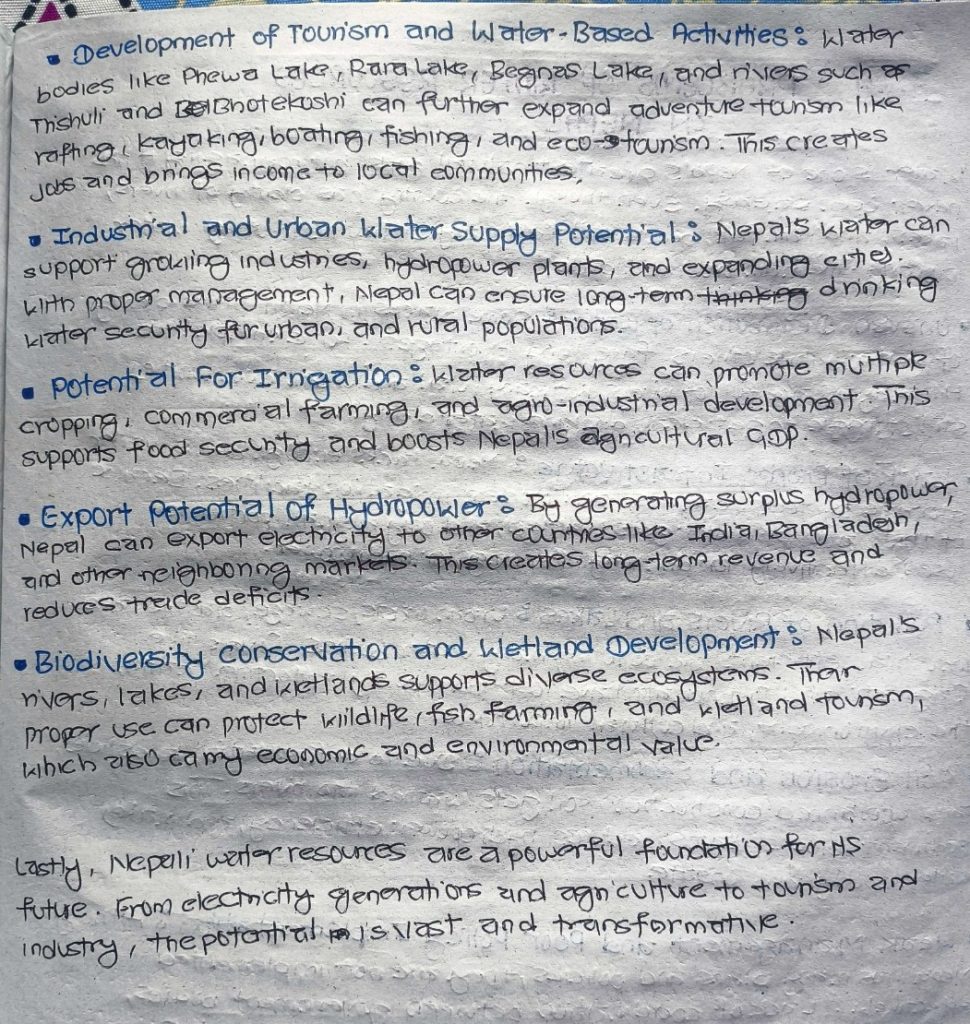 ▪ Development of Tourism and Water-Based Activities: Water
bodies like Phewa Lake, Rara Lake, Begnas Lake, and rivers such as
Thishuli and Bhotekoshi can further expand adventure tourism like
rafting, kayaking, boating, fishing, and eco-tourism. This creates
jobs and brings income to local communities.
▪ Industrial and Urban Water Supply Potential: Nepal's water can
support growing industries, hydropower plants, and expanding cities.
With proper management, Nepal can ensure long-term thinking drinking
water security for urban, and rural populations.
▪ Potential For Irrigation: Water resources can promote multiple
cropping, commercial farming, and agro-industrial development. This
supports food security and boosts Nepal's agricultural GDP.
▪ Export Potential of Hydropower: By generating surplus hydropower,
Nepal can export electricity to other countries like India, Bangladesh,
and other neighboring markets. This creates long-term revenue and
reduces trade deficits.
▪ Biodiversity conservation and Wetland Development: Nepal's
rivers, lakes, and wetlands supports diverse ecosystems. Their
proper use can protect wildlife, fish farming, and wetland tourism,
which also carry economic and environmental value.
Lastly, Nepali water resources are a powerful foundation for its
future. From electricity generations and agriculture to tourism and
industry, the potential is vast and transformative.